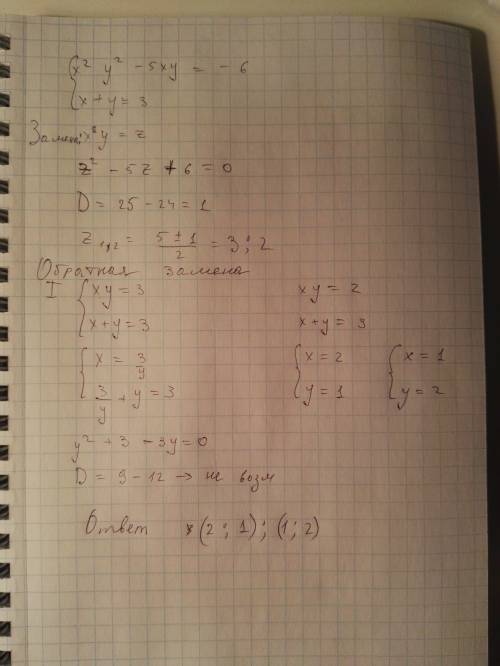 { x² y² - 5xy = - 6
x + y = 3
Замена: x*y = z
z² - 5z + 6 = 0
D = 25 - 24 = 1
z₁,₂ = (5 ± 1)/2 = 3 ; 2
Обратная замена
I { xy = 3
x + y = 3
{ x = 3/y
3/y + y = 3
y² + 3 - 3y = 0
D = 9 - 12 → не возм
xy = 2
x + y = 3
{ x = 2
y = 1
{ x = 1
y = 2
Ответ (2 ; 1) ; (1 ; 2)